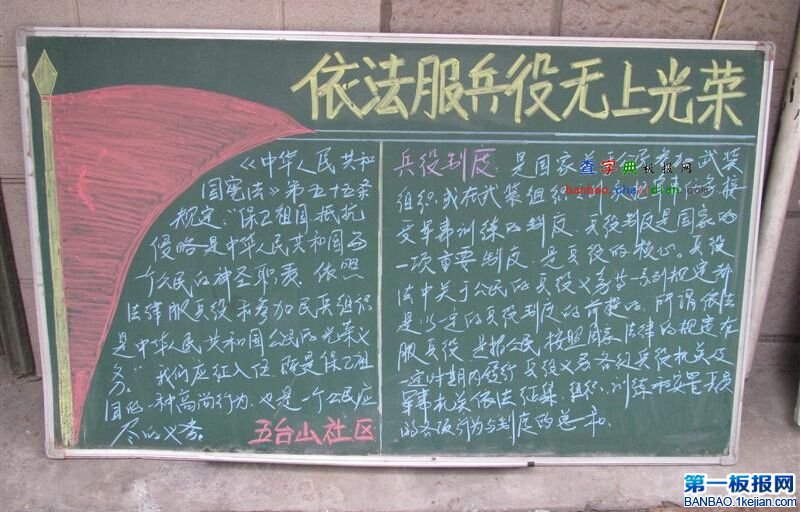 依法服兵役无上光荣
《中华人民共和
国宪法》第五十五条
规定:"保卫祖国、抵抗
侵略是中华人民共和国每
一个公民的神圣职责。依照
法律服兵役和参加民兵组织
是中华人民共和国公民的光荣义
务。"我们应征入伍 既是保卫祖
国的一种高尚行为,也是一个公民应
尽的义务。
五台山社区
兵役制度:是国家 武装
组织,或在武装组织 接
受军事训练的制度。兵役制度是国家的
一项重要制度,是兵役的核心。兵役
法中关于公民的兵役义务 规定都
是 兵役制度的前提的,所谓依法
服兵役,是指公民按照国家法律的规定在
一定时期内履行兵役义务各级兵役机关及
军事机关依法征集、组织、训练和安置兵员
的各项行为与制度的总和。
查字典板报网
banbao.chazidian.com
第一板报网
BANBAO.1kejian.com